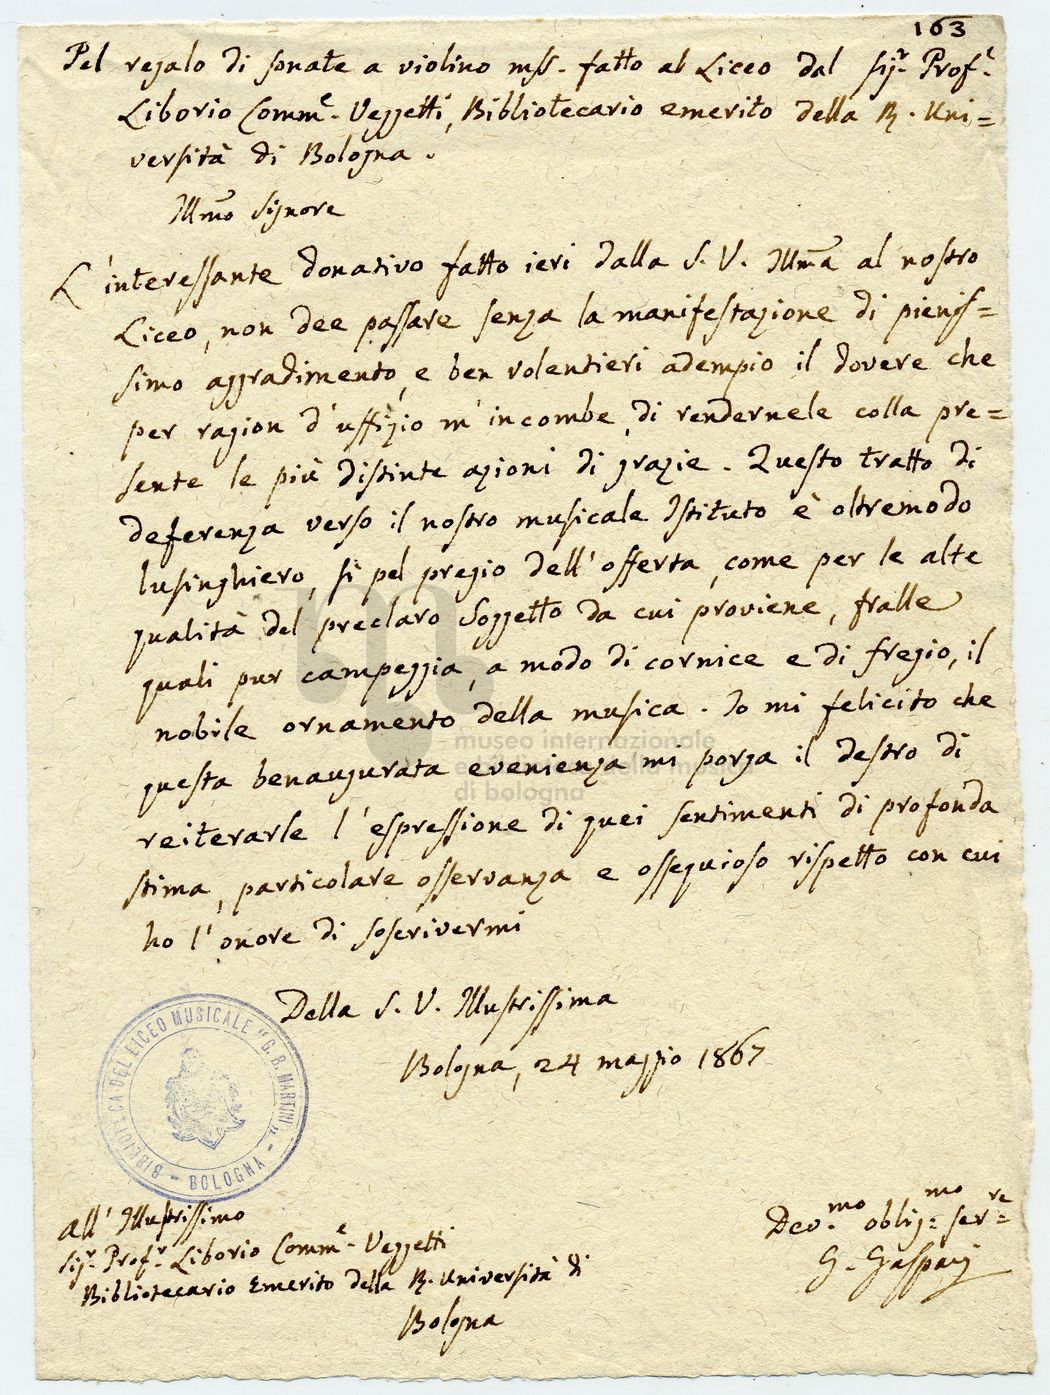 163
Pel regalo di sonate a violino mss. fatto al Liceo dal Sig.r Prof.r
Liborio Comm.e Veggetti, Bibliotecario emerito della R. Uni=
versità di Bologna.
Illmo Signore
L'interessante donativo fatto ieri dalla S. V. Illma al nostro
Liceo, non dee passare senza la manifestazione di pienis=
simo aggradimento, e ben volentieri adempio il dovere che
per ragion d'uffizio m'incombe, di rendernele colla pre=
sente le più distinte azioni di grazie. Questo tratto di
deferenza verso il nostro musicale Istituto è oltremodo
lusinghiero, sì pel pregio dell'offerta, come per le alte
qualità del preclaro Soggetto da cui proviene, fralle
quali pur campeggia, a modo di cornice e di fregio, il
nobile ornamento della musica. Io mi felicito che
questa benaugurata evenienza mi porga il destro di
reiterarle l'espressione di quei sentimenti di profonda
stima, particolare osservanza e ossequioso rispetto con cui
ho l'onore di soscrivermi
Della S. V. Illustrissima
Bologna, 24 maggio 1867
BIBLIOTECA DEL LICEO MUSICALE "G. B. MARTINI" - BOLOGNA -
All'Illustrissimo
Sig.r Prof.r Liborio Comm.e Veggetti
Bibliotecario Emerito della R. Università di
Bologna
Dev.mo oblig.mo ser.re
G. Gaspari
museo internazionale
di bologna